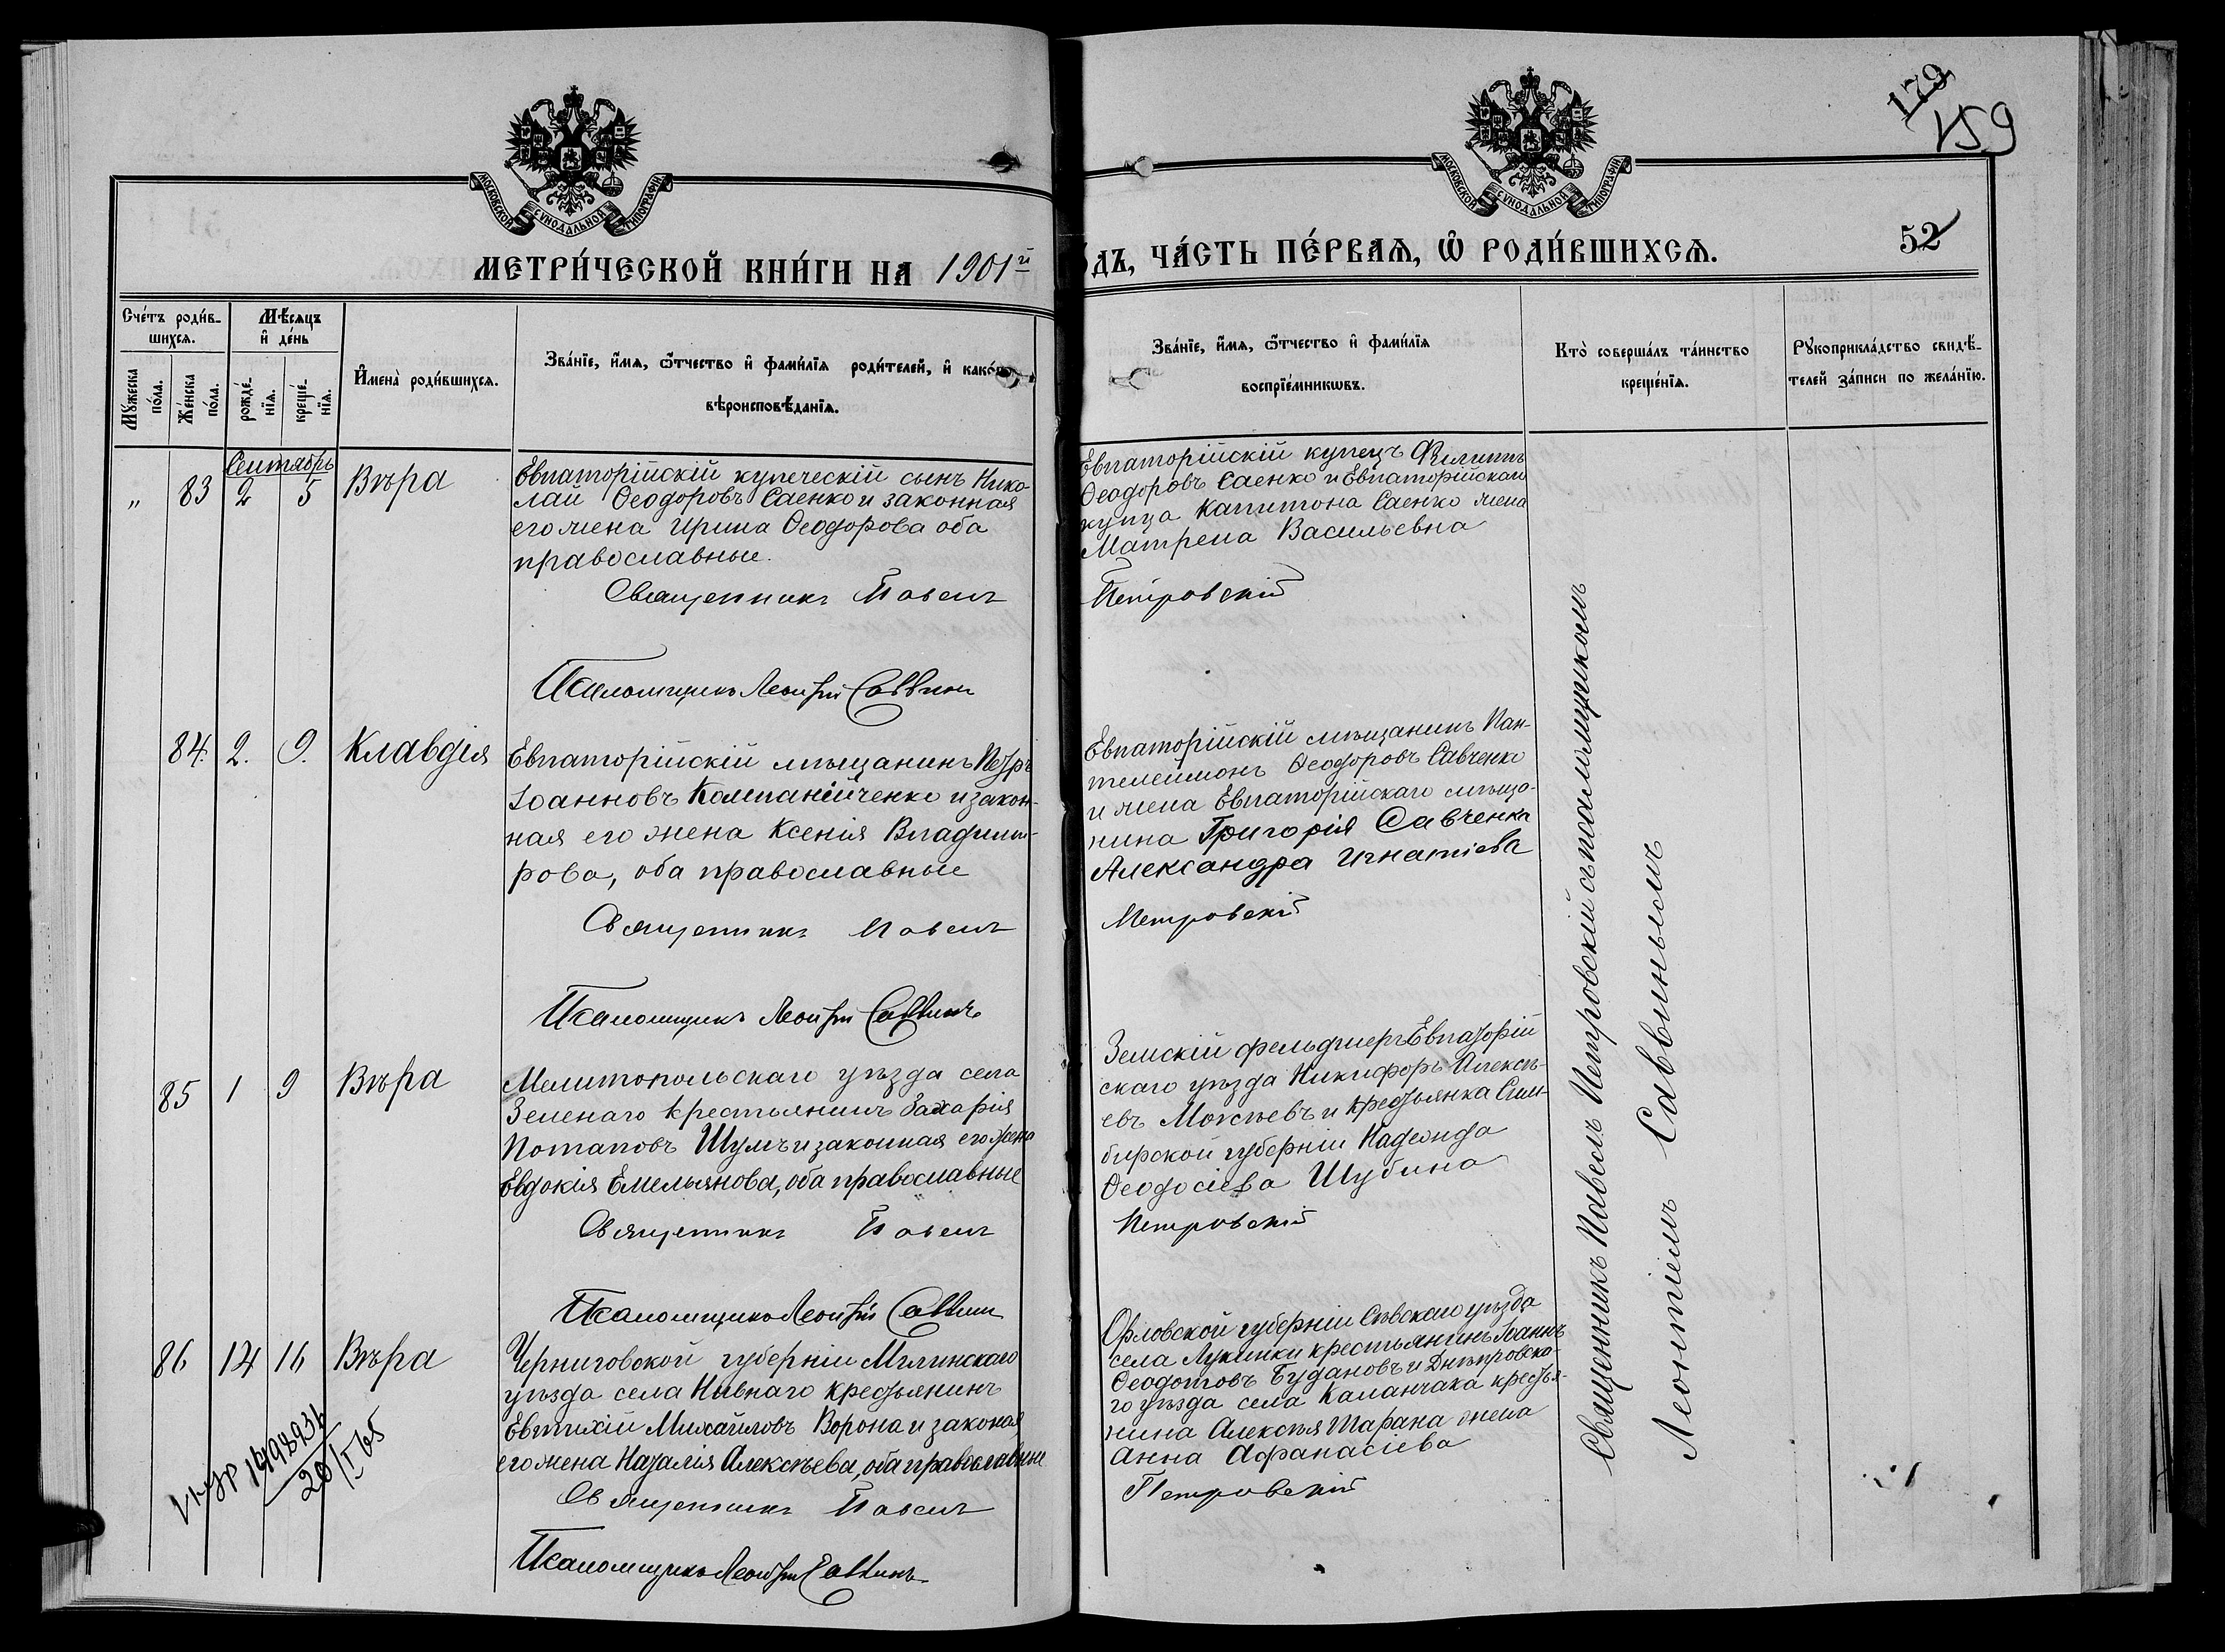 179
159
МОСКОВСКОЙ СѴНОДАЛЬНОЙ ТИПОГРАФІИ
МОСКОВСКОЙ СѴНОДАЛЬНОЙ ТИПОГРАФІИ
52
МЕТРИ́ЧЕСКОЙ КНИ́ГИ НА 1901й
ДЪ, ЧА́СТЬ ПЕ́РВАѦ, Ѡ҆ РОДИ́ВШИХСѦ.
Счéтъ роди́в-
шихсѧ.
Мѣ́сѧцъ
и҆ де́нь
Мꙋ́жеска
по́ла.
Же́нска
по́ла.
рожде́-
нїѧ.
креще́-
нїѧ.
И҆мена̀ роди́вшихсѧ.
Зва́нїе, и҆́мѧ, ѻ҆́тчество и҆ фами́лїѧ роди́телей, и҆ како́гѡ
вѣроисповѣ́данїѧ.
Зва́нїе, и҆́мѧ, ѻ҆́тчество и҆ фами́лїѧ
воспрїе́мникѡвъ.
Кто̀ соверша́лъ та́инство
креще́нїѧ.
Рꙋкоприкла́дство свидѣ́-
телей за́писи по жела́нїю.
Сентябрь
„ 83 2 5 Вѣра
Евпаторійскій купеческій сынъ Нико-
лай Ѳеодоровъ Саенко и законная
его жена Ирина Ѳеодорова оба
православные.
Священникъ Павелъ
Псаломщикъ Леонтій Саввинъ
Евпаторійскій купецъ Филиппъ
Ѳеодоровъ Саенко и Евпаторійскаго
купца Капитона Саенко жена
Матрена Васильевна
Петровскій
84. 2. 9. Клавдія
Евпаторійскій мѣщанинъ Петръ
Іоанновъ Компанійченко и закон-
ная его жена Ксенія Владими-
рова, оба православные
Священникъ Павелъ
Псаломщикъ Леонтій Саввинъ
Евпаторійскій мѣщанинъ Пан-
телеймонъ Ѳеодоровъ Савченко
и жена Евпаторійскаго мѣща-
нина Григорія Савченка
Александра Игнатіева
Петровскій
85 1 9 Вѣра
Мелитопольскаго уѣзда села
Зеленаго крестьянинъ Захарія
Потаповъ Шумъ и законная его жена
Евдокія Емельянова, оба православные
Священникъ Павелъ
Псаломщикъ Леонтій Саввин
Земскій фельдшеръ Евпаторій
скаго уѣзда Никифоръ Алексѣ-
евъ Мокѣевъ и крестьянка Сим-
бирской губерніи Надежда
Ѳеодосіева Шубина
Петровскій
86 14 16 Вѣра
Черниговской губерніи Мглинскаго
уѣзда села Нивнаго крестьянинъ
Евтихій Михайловъ Ворона и законая
его жена Наталія Алексѣева, оба православные
Священникъ Павелъ
Псаломщикъ Леонтій Саввинъ
Орловской губерніи Сѣвскаго уѣзда
села Лукинки крестьянинъ Іоаннъ
Ѳеодотовъ Будановъ и Днѣпровска-
го уѣзда села Каланчака крестья-
нина Алексѣя Шарана жена
Анна Афанасіева
Петровскій
20/I 65
Священникъ Павелъ Петровскій съ псаломщикомъ
Леонтіемъ Саввинымъ